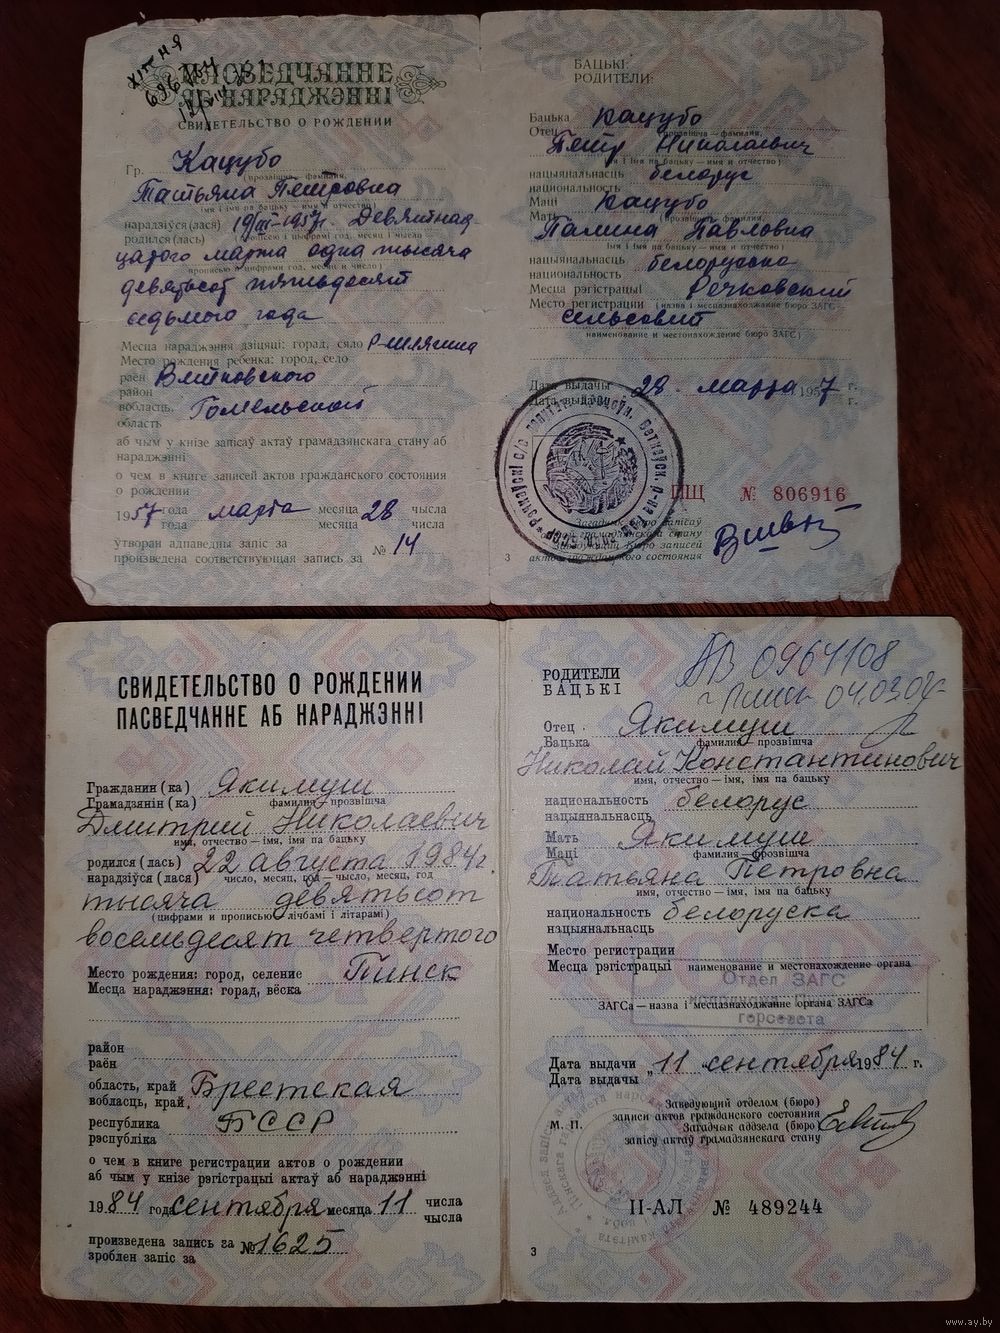 ПАСВЕДЧАННЕ
АБ НАРАДЖЭННІ
СВИДЕТЕЛЬСТВО О РОЖДЕНИИ
Гр. Кацубо
(прозвішча — фамилия,
Татьяна Петровна
імя і імя па бацьку — имя и отчество)
нарадзіўся (лася) 19/III-1957г. Девятнад
родился (лась) прописью и цифрами год, месяц и число
цатого марта одна тысяча
прописью и цифрами год, месяц и число)
девятьсот пятьдесят
седьмого года
Месца нараджэння дзіцяці: горад, сяло
Место рождения ребенка: город, село
раён
район
вобласць Гомельской
область
аб чым у кнізе запісаў актаў грамадзянскага стану аб
нараджэнні
о чем в книге записей актов гражданского состояния
о рождении
1957 года марта месяца 28 чысла
года месяца числа
утворан адпаведны запіс за
произведена соответствующая запись за № 14
БАЦЬКІ:
РОДИТЕЛИ:
Бацька Кацубо
Отец (прозвішча — фамилия,
Петр Николаевич
імя і імя па бацьку — имя и отчество)
нацыянальнасць белорус
национальность
Маці Кацубо
Мать (прозвішча — фамилия,
Палина Павловна
імя і імя па бацьку — имя и отчество)
нацыянальнасць белоруска
национальность
Месца рэгістрацыі Речковский
Место регистрации (назва і месцазнаходжанне бюро ЗАГС
сельсовит
наименование и местонахождение бюро ЗАГС)
Дата выдачы 28 марта 1957 г.
Дата выдачи г.
ПЩ № 806916
Загадчык бюро запісаў
актаў грамадзянскага стану
Заведующий Бюро записей
актов гражданского состояния
3
СВИДЕТЕЛЬСТВО О РОЖДЕНИИ
ПАСВЕДЧАННЕ АБ НАРАДЖЭННІ
Гражданин (ка) Якимуш
Грамадзянін (ка) фамилия — прозвішча
Дмитрий Николаевич
имя, отчество — імя, імя па бацьку
родился (лась) 22 августа 1984 г.
нарадзіўся (лася) число, месяц, год — чысло, месяц, год
тысяча девятьсот
(цифрами и прописью — лічбамі і літарамі)
восемьдесят четвертого
Место рождения: город, селение Пинск
Месца нараджэння: горад, вёска
район
раён
область, край Брестская
вобласць, край
республика БССР
рэспубліка
о чем в книге регистрации актов о рождении
аб чым у кнізе рэгістрацыі актаў аб нараджэнні
1984 года сентября месяца 11 числа
чысла
произведена запись за № 1625
зроблен запіс за
РОДИТЕЛИ
БАЦЬКІ
АВ 0964108
г. Пинск 04.03.04
Отец Якимуш
Бацька фамилия — прозвішча
Николай Константинович
имя, отчество — імя, імя па бацьку
национальность белорус
нацыянальнасць
Мать Якимуш
Маці фамилия — прозвішча
Татьяна Петровна
имя, отчество — імя, імя па бацьку
национальность белоруска
нацыянальнасць
Место регистрации
Месца рэгістрацыі наименование и местонахождение органа
Отдел ЗАГС
ЗАГСа — назва і месцазнаходжанне органа ЗАГСа
горсовета
Дата выдачи „11 сентября 1984 г.
Дата выдачы
Заведующий отделом (бюро)
записи актов гражданского состояния
М. П. Загадчык аддзела (бюро)
запісу актаў грамадзянскага стану
II-АЛ № 489244
3
www.ay.by